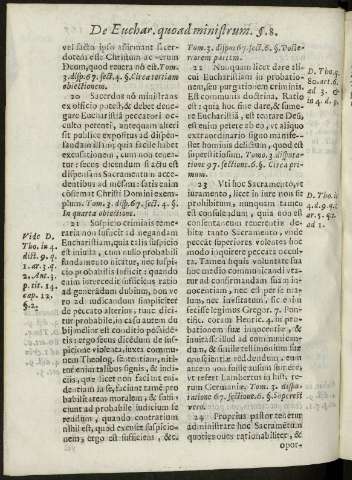 De Euchar. quoad ministrum. §. 8.
vel facto ipso affirmant sacer-
dotem esse Christum ac verum
Deum, quod revera nō est. Tom.
3. disp. 67. sect. 4. §. Circa tertiam
obiectionem.
20 Sacerdos nō ministrans
ex officio potest, & debet dene-
gare Eucharistiā peccatori oc-
culto petenti, antequam alteri
sit publice expositus ad dispen-
sandam illi quia facile habet
excusationem, cum non tenea-
tur: secus dicendum si actu est
dispensans Sacramentum acce-
dentibus ad mensā: satis enim
est Christi Domini exem-
plum. Tom. 3. disp. 67. sect. 4. §.
In quarta obiectione.
21 Suspicio criminis teme-
raria non sufficit ad negandam
Eucharistiam, quia talis suspicio
est iniusta, cum nullo probabili
fundamento nitatur, nec suspi-
cio probabilis sufficit: quando
enim intercedit suspicio ratio
ad generandum dubium, non ve-
ro ad iudicandum simpliciter
de peccato alterius, tunc dici-
tur probabile, in casu autem du-
bij melior est conditio posside-
tis: ergo secus dicēdum de sus-
picione violenta, iuxta commu-
nem Theolog. sententiam, niti-
tur enim talibus signis, & indi-
ciis, quæ licet non faciant evi-
dentiam in se, faciunt tamē pro-
babilitatem moralem, & suffi-
ciunt ad probabile iudicium fe-
rendum, quando contrarium
nihil est, quod excuset suspicio-
nem, ergo est sufficiens, &c.
Vide D.
Tho. in 4.
dist. 9. q.
1. ar. 3. q.
2. Ant. 3.
p. tit. 14.
cap. 12.
§. 2.
Tom. 3. disput. 67. sect. 6. §. Poste-
riorem partem.
22 Nunquam licet dare ali-
cui Eucharistiam in probatio-
nem, seu purgationem criminis.
Est communis doctrina. Ratio
est: quia hoc sine dare, & sume-
re Eucharistiā, est tentare Deū,
est enim petere ab eo, ut aliquo
extraordinario signo manifes-
tet occultum delictum, quod est
superstitiosum. Tom. 3. disputa-
tione 67. sectione. 6. §. Circa pri-
mum.
23 Usus hoc Sacramento, ut
iuramento, licet in iure non sit
prohibitum, nunquam tamen
est consulendum, quia non est
hoc reverentiæ conveniens de-
bitæ tanto Sacramento, unde
peccat superior volentes hoc
modo inquirere peccata occul-
ta. Tamen siquis voluntarie sua
hoc medio communicandi uta-
tur ad confirmandam suam in-
nocentiam, nec est per se ma-
lum, nec inusitatum, sic enim
fecisse legimus Gregor. 7. Pon-
tific. coram Henric. 4. in pro-
bationem suæ innocentiæ, &
invitasse illum ad communican-
dum, & similem testimonium suæ
cōscientiæ perhibendum, sed
imperatorem nō ausum esse, &c.
ut refert Lambertus in hist. re-
rum Germaniæ. Tom. 3. dispu-
tatione 67. sectione. 6. §. Superest
vero.
24 Proprius pastor tenetur
ministrare hoc Sacramentum
quoties oves rationabiliter, &
opor-
D. Tho. q.
80. art. 6.
ad 3. &
in 4. d. 9.
D. Tho. in
4. d. 9. q. 2.
ar. 5. q. 2.
ad 1.